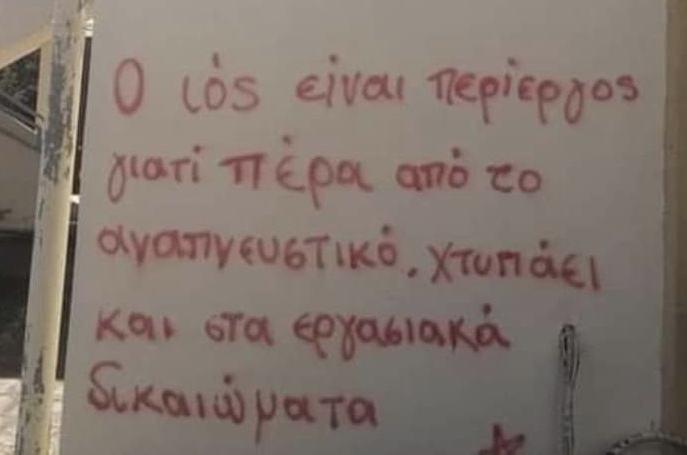 Ο ιός είναι περίεργος
γιατί πέρα από το
αναπνευστικό, χτυπάει
και στα εργασιακά
δικαιώματα